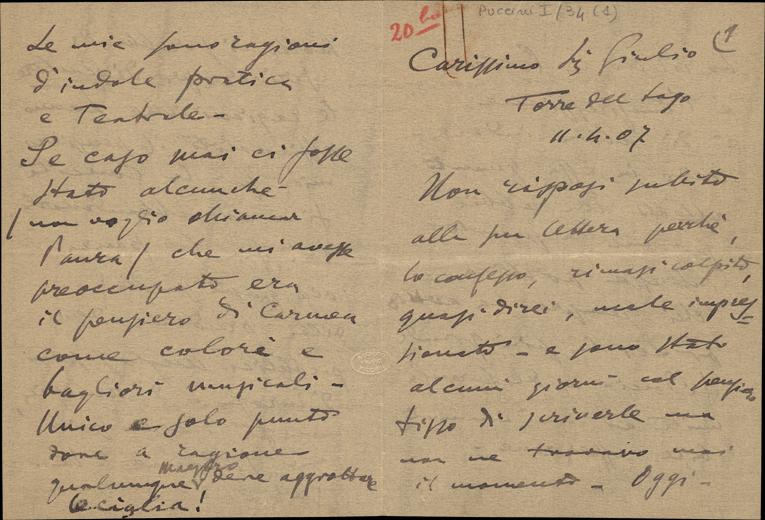 20 bre
Puccini I/34 (1)
(1
Carissimo Sig Giulio
Torre del Lago
11.4.07
Non risposi subito
alla sua lettera perchè,
lo confesso, rimasi colpito,
quasi direi, male impres-
sionato - e sono stato
alcuni giorni col pensiero
fisso di scriverle ma
non ne trovavo mai
il momento - Oggi -
Le mie sono ragioni
d'indole pratica
e Teatrale -
Se caso mai ci fosse
stato alcunchè
/ non voglio chiamar
Paura / che mi avesse
preoccupato era
il pensiero di Carmen
come colore e
bagliori musicali -
Unico e solo punto
dove a ragione
qualunque maestro deve aggrottare
le ciglia!